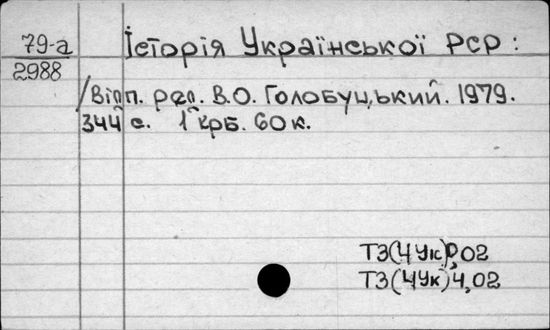 79-а Історія Української РСР :
2988
/Відп. ред. В.О. Голобуцький. 1979.
344 с. 1 крб. 60 к.
Т3(4Ук)0,02
Т3(4Ук)4,02